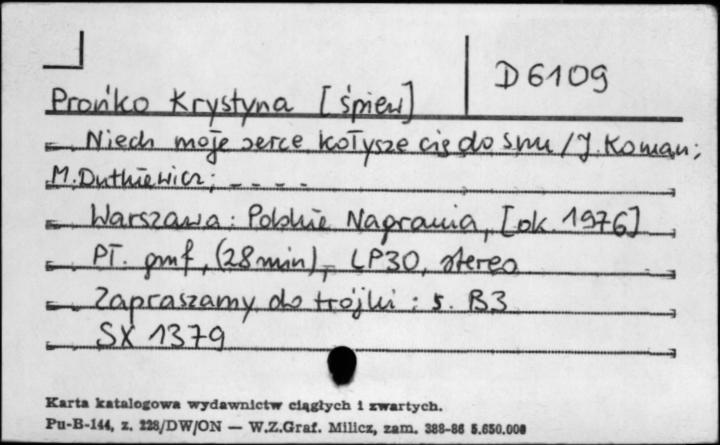 D 6109
Prońko Krystyna [śpiew]
Niech moje serce kołysze cię do snu / J. Koman;
M. Dutkiewicz; - - - -
Warszawa : Polskie Nagrania, [ok. 1976]
Pł. gmf, (28 min), - LP30, stereo
Zapraszamy do trójki : s. B3
SX 1379
Karta katalogowa wydawnictw ciągłych i zwartych.
Pu-B-144, z. 228/DW/ON — W.Z.Graf. Milicz, zam. 388-86 5.650.000